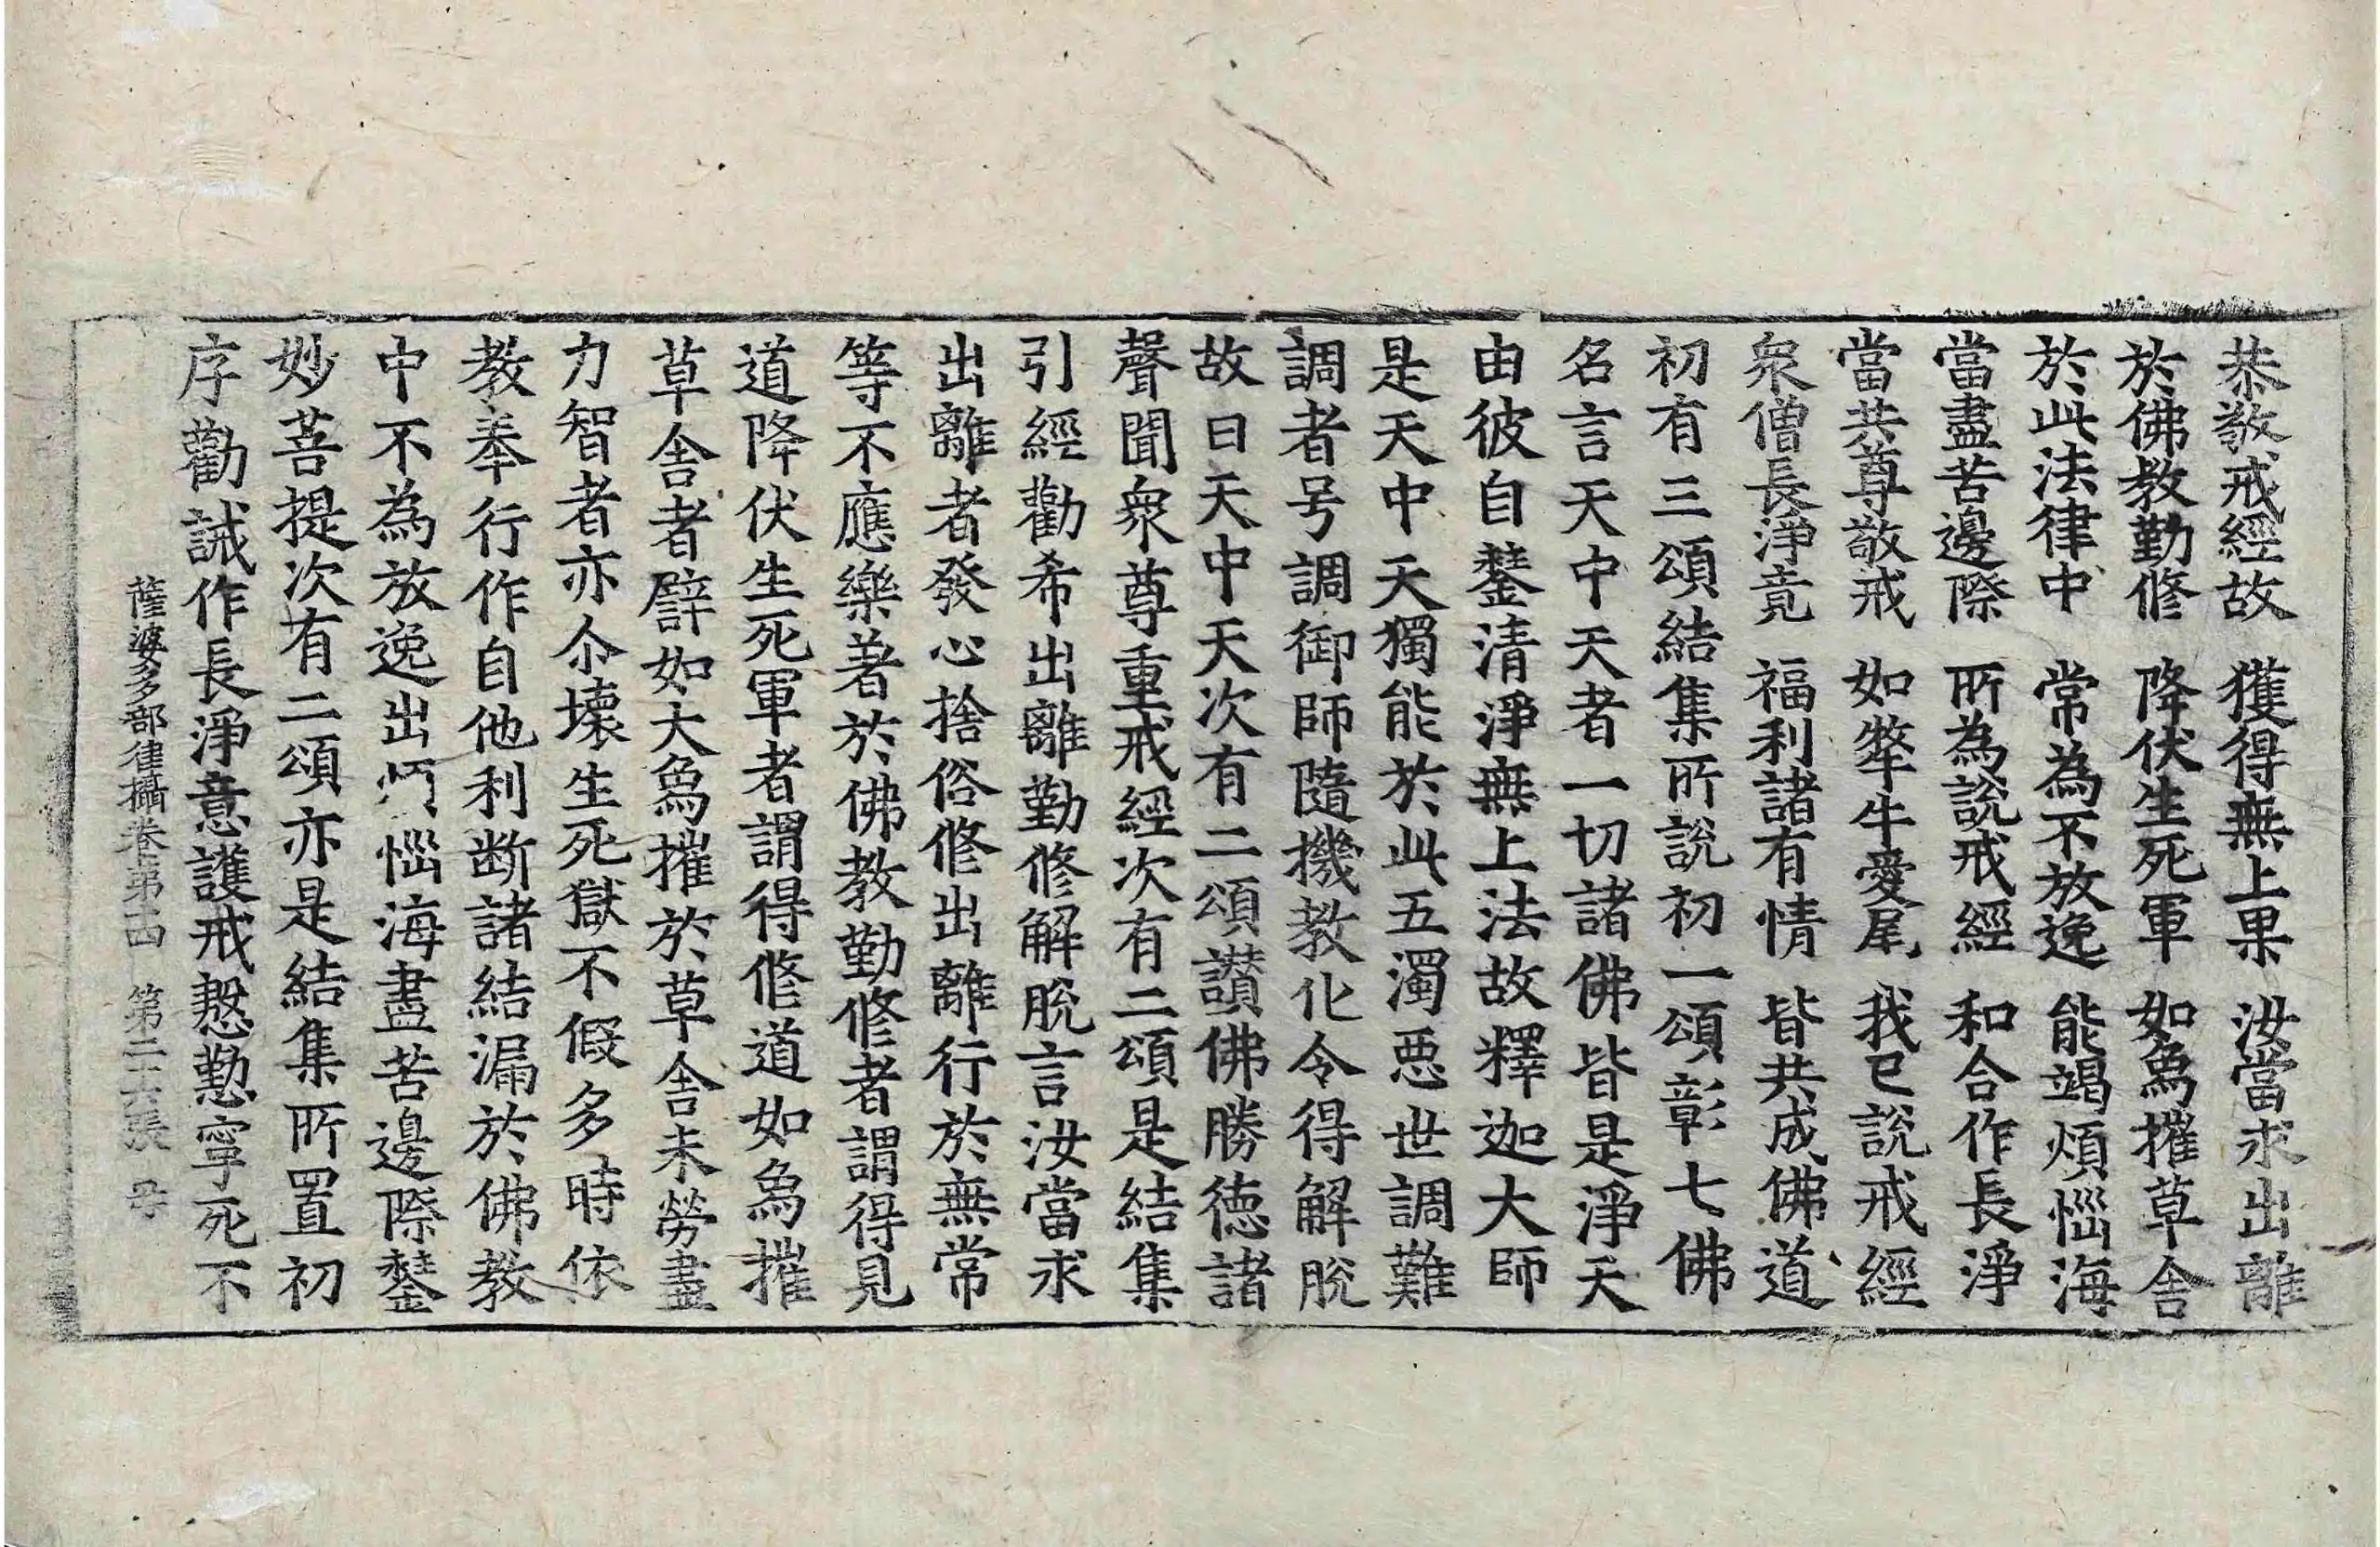 恭敬戒經故　獲得無上果　汝當求出離
於佛教勤修　降伏生死軍　如象摧草舍
於此法律中　常為不放逸　能竭煩惱海
當盡苦邊際　所為說戒經　和合作長淨
當共尊敬戒　如犛牛愛尾　我已說戒經
衆僧長淨竟　福利諸有情　皆共成佛道
初有三頌結集所說初一頌彰七佛
名言天中天者一切諸佛皆是淨天
由彼自鏊清淨無上法故釋迦大師
是天中天獨能於此五濁惡世調難
調者号調御師隨機教化令得解脫
故曰天中天次有二頌讚佛勝德諸
聲聞衆尊重戒經次有二頌是結集
引經勸希出離勤修解脫言汝當求
出離者發心捨俗修出離行於無常
等不應樂著於佛教勤修者謂得見
道降伏生死軍者謂得修道如象摧
草舍者譬如大象摧於草舍未勞盡
力智者亦尒壞生死獄不假多時依
教奉行作自他利断諸結漏於佛教
中不為放逸出煩惱海盡苦邊際鏊
妙菩提次有二頌亦是結集所置初
序勸誡作長淨意護戒慇懃寧死不
薩婆多部律攝卷第十四　第二十六張　母